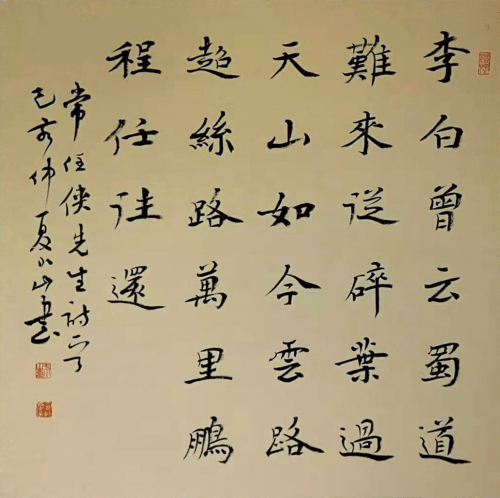 李白曾云蜀道
難來從碎葉過
天山如今雲路
超絲路萬里鵬
程任往還
常任俠先生詩
己亥仲夏小山書